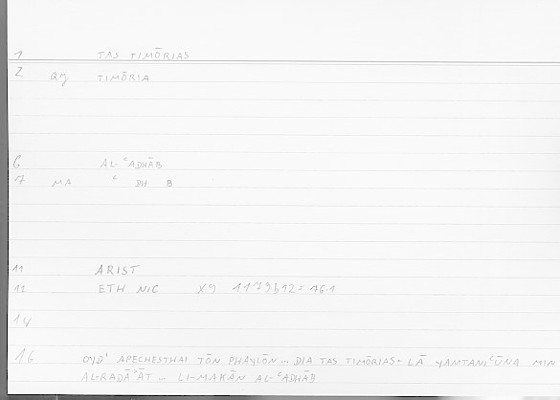 1 TAS TIMŌRIAS
2 ay TIMŌRIA
6 AL-ʿADHĀB
7 MA ʿ DH B
11 ARIST
12 ETH NIC X9 1179b12 = 75.1
14
16 OYD' APECHESTHAI TŌN PHAYLŌN... DIA TAS TIMŌRIAS - LĀ YAMTANIʿŪNA MIN
AL-RADĀʾĀT... LI-MAKĀN AL-ʿADHĀB